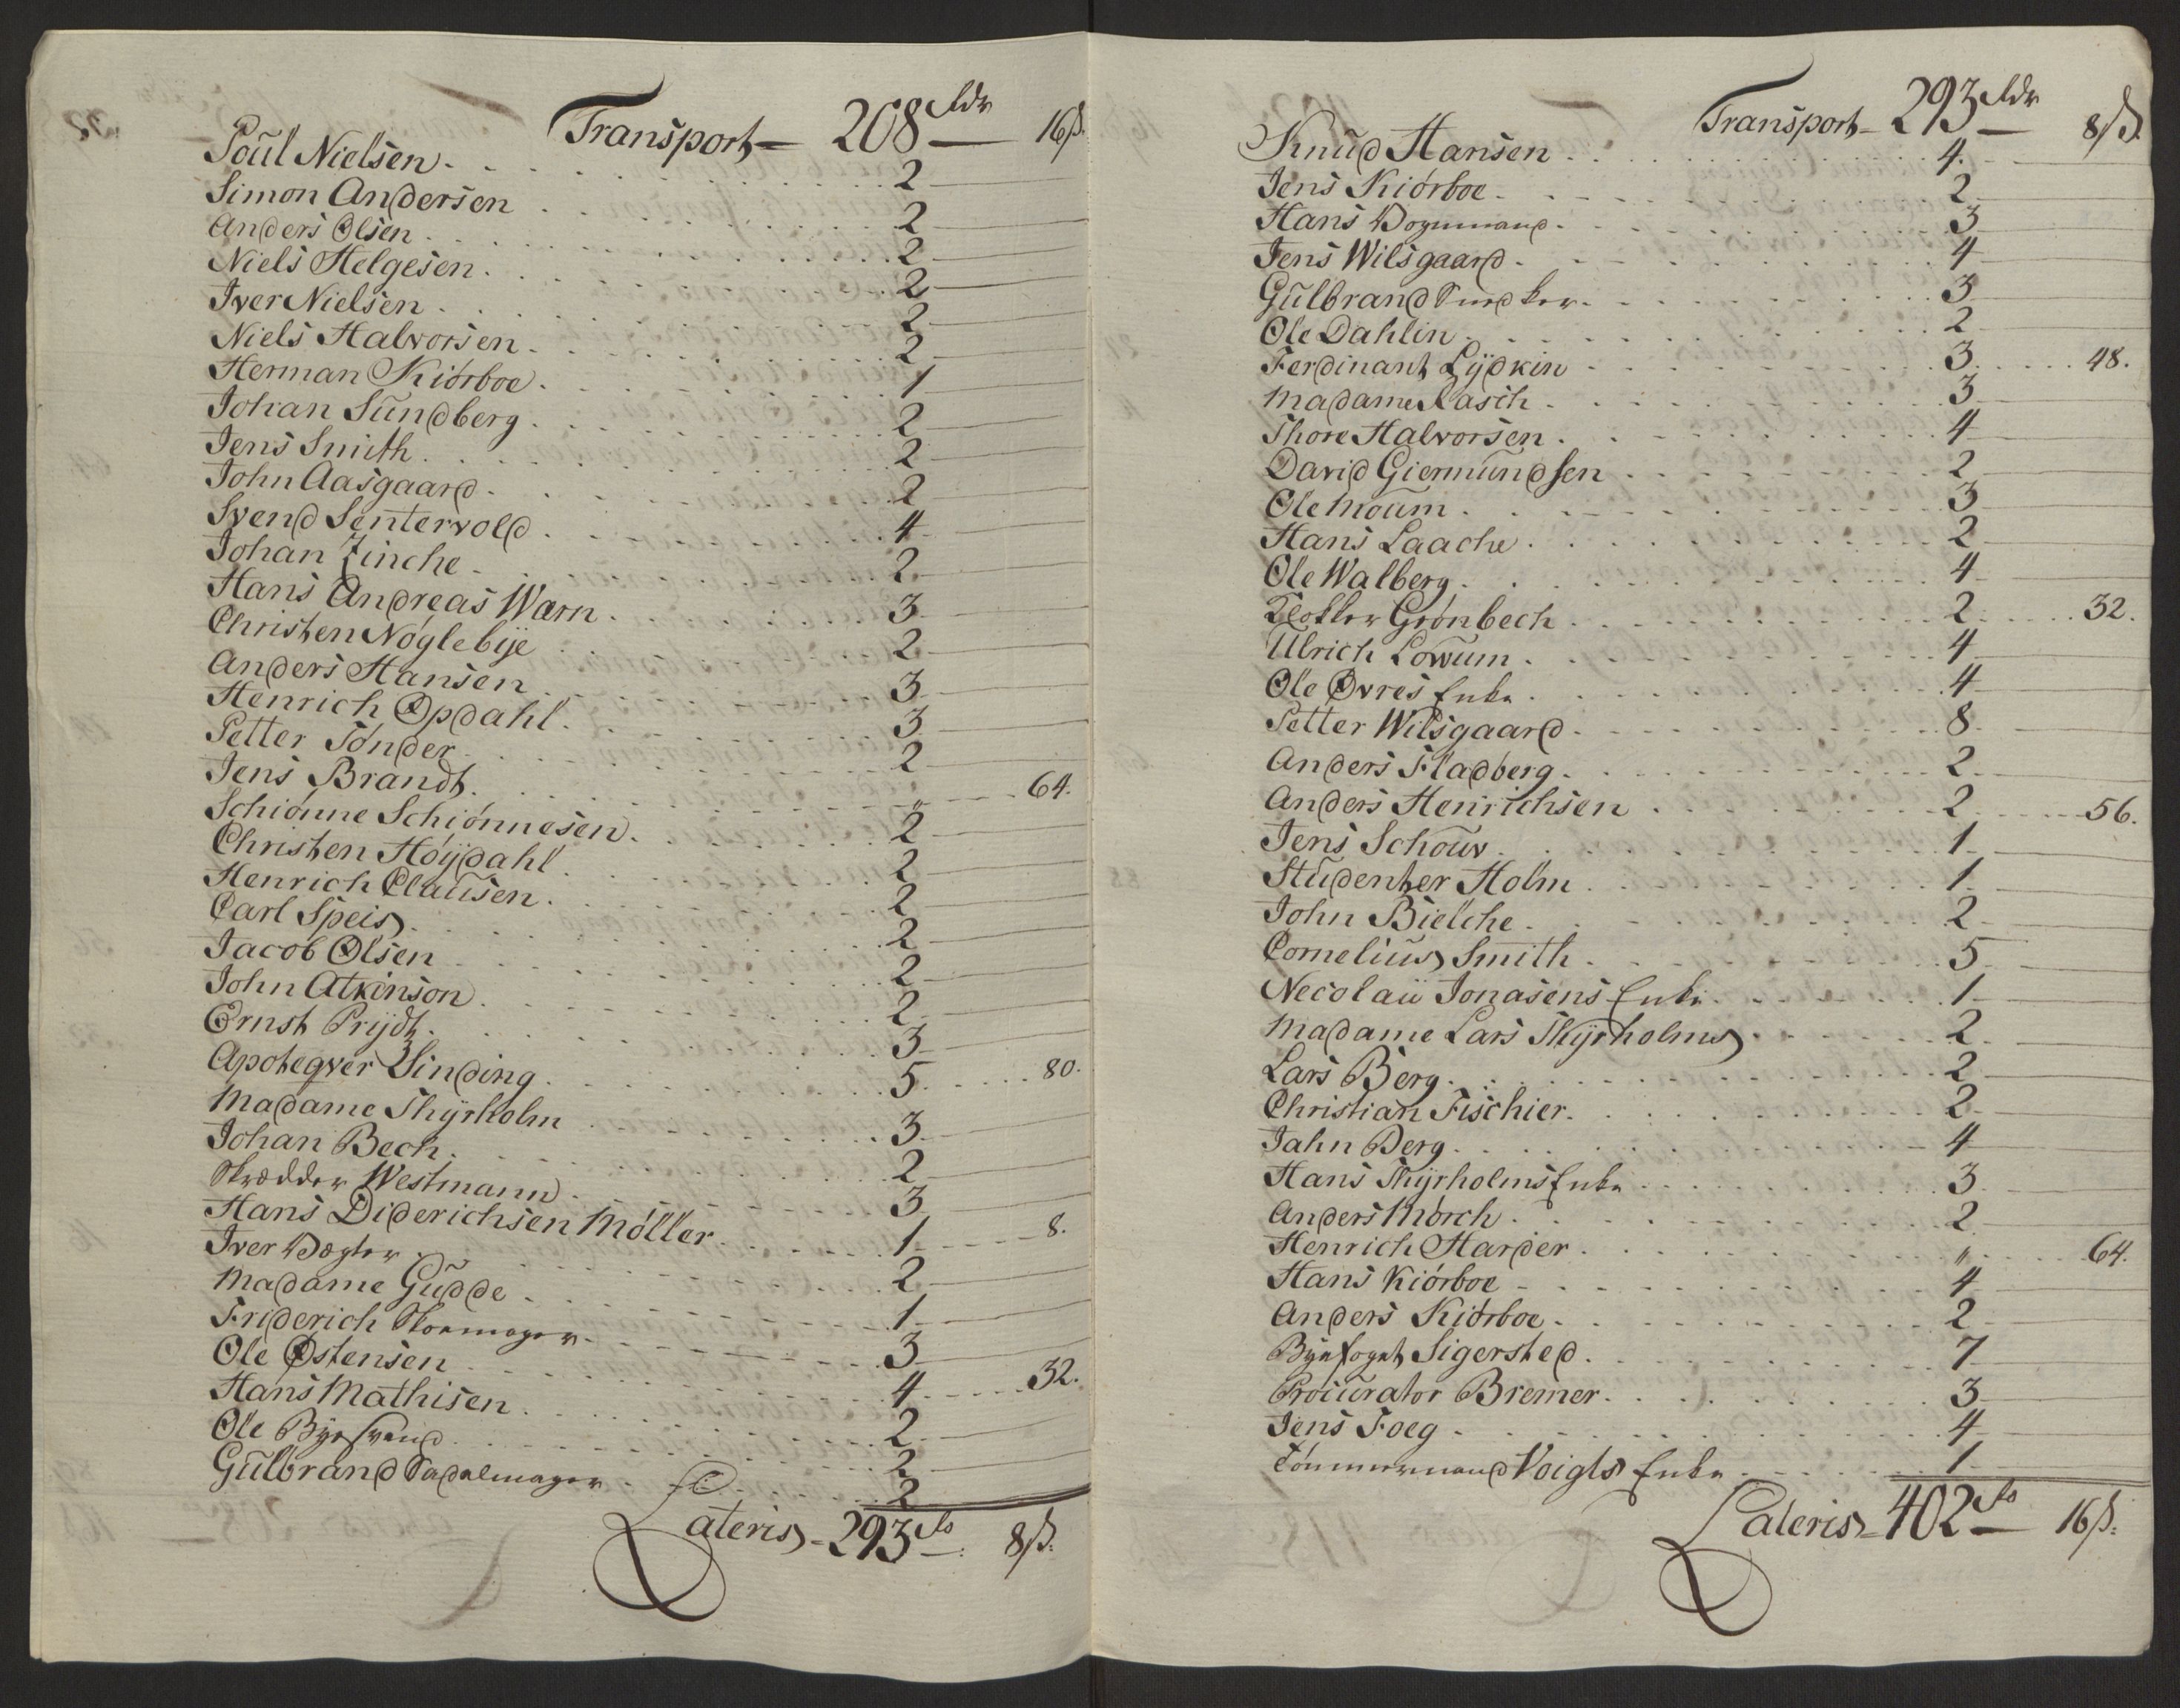 Transport 208 Rdr 16 ß.
Poul Nielsen 2
Simon Andersen 2
Anders Olsen 2
Niels Helgesen 2
Iver Nielsen 2
Niels Halvorsen 2
Herman Kiórboe 1
Johan Sundberg 2
Jens Smith 2
John Aasgaard 2
Svend Sentervold 4
Johan Zinche 2
Hans Andreas Wærn 3
Christen Nóglebÿe 2
Anders Hansen 3
Henrich Opdahl 3
Petter Tónder 2
Jens Brandt " 64.
Schiónne Schiónnesen 2
Christen Hóÿdahl 2
Henrich Clausen 2
Carl Speis 2
Jacob Olsen 2
John Atkinson 2
Ernst Prÿdt 3
Apoteqver Sinding 5 80.
Madame Thÿrholm 3
Johan Bech 2
Skrædder Westmann 3
Hans Diderichsen Móller 1 8.
Iver Vægter 2
Madame Gudde 1
Friderich Skoemager 3
Ole Østensen 4 32.
Hans Mathisen 2
Ole Byesvend 2
Gulbrand Sadelmager 2
Lateris 293 8 ß.
Transport 293 Rdr 8 ß.
Knud Hansen 4
Jens Kiórboe 2
Hans Vognmand 3
Jens Wilsgaard 4
Gulbrand Snedker 3
Ole Dahlin 2
Ferdinant Lÿdkin 3 48.
Madame Rasch 3
Thore Halvorsen 4
David Giermundsen 2
Ole Moum 3
Hans Laache 2
Ole Walberg 4
Klokker Grónbech 2 32.
Ulrich Lowum 4
Ole Øvres Enke 4
Petter Wilsgaard 8
Anders Fladberg 2
Anders Henrichsen 2 56.
Jens Schouv 1
Studenter Holm 1
John Bielche 2
Cornelius Smith 5
Necolaii Jonasens Enke 1
Madame Lars Thÿrholms 2
Lars Berg 2
Christian Fischier 2
Jahn Berg 4
Hans Thÿrholms Enke 3
Anders Mórch 2
Henrich Harder " 64.
Hans Kiórboe 4
Anders Kiórboe 2
Byefoget Sigersted 7
Procurator Bremer 3
Jens Foeg 4
Tómmermand Voigts Enke 1
Lateris 402 16 ß.